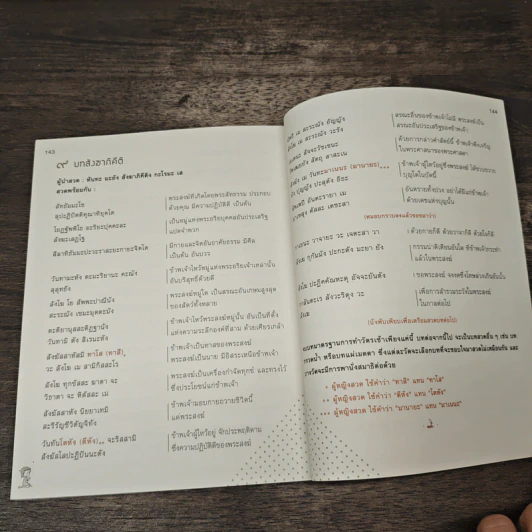 143
๙ บทสังฆาภิคีติ
ผู้นำสวด : หันทะ มะยัง สังฆาภิคีติง กะโรมะ เส
สวดพร้อมกัน :
สัทธัมมะโช พระสงฆ์ที่เกิดโดยพระสัทธรรม ประกอบ
สุปะฏิปัตติคุณาทิยุตโต ด้วยคุณ มีความปฏิบัติดี เป็นต้น
โยฏฐัพพิโธ อะริยะปุคคะละ เป็นหมู่แห่งพระอริยบุคคลอันประเสริฐ
สังฆะเสฏโฐ แปดจำพวก
สีลาทิธัมมะปะวะราสะยะกายะจิตโต มีกายและจิตอันอาศัยธรรม มีศีล
เป็นต้น อันบวร
วันทามะหัง ตะมะริยานะ คะณัง ข้าพเจ้าไหว้หมู่แห่งพระอริยเจ้าเหล่านั้น
สุสุทธัง อันบริสุทธิ์ด้วยดี
สังโฆ โย สัพพะปาณีนัง พระสงฆ์หมู่ใด เป็นสรณะอันเกษมสูงสุด
สะระณัง เขมะมุตตะมัง ของสัตว์ทั้งหลาย
ตะติยานุสสะติฏฐานัง ข้าพเจ้าไหว้พระสงฆ์หมู่นั้น อันเป็นที่ตั้ง
วันทามิ ตัง สิเรนะหัง แห่งความระลึกองค์ที่สาม ด้วยเศียรเกล้า
สังฆัสสาหัสมิ ทาโส (ทาสี), ข้าพเจ้าเป็นทาสของพระสงฆ์
วะ สังโฆ เม สามิกิสสะโร พระสงฆ์เป็นนาย มีอิสระเหนือข้าพเจ้า
สังโฆ ทุกขัสสะ ฆาตา จะ พระสงฆ์เป็นเครื่องกำจัดทุกข์ และทรงไว้
วิธาตา จะ หิตัสสะ เม ซึ่งประโยชน์แก่ข้าพเจ้า
สังฆัสสาหัง นิยยาเทมิ ข้าพเจ้ามอบกายถวายชีวิตนี้
สะรีรัญชีวิตัญจิทัง แด่พระสงฆ์
วันทันโตหัง (ตีหัง),, จะริสสามิ ข้าพเจ้าผู้ไหว้อยู่ จักประพฤติตาม
สังฆัสโสปะฏิปันนะตัง ซึ่งความปฏิบัติดีของพระสงฆ์
144
นัตถิ เม สะระณัง อัญญัง สรณะอื่นของข้าพเจ้าไม่มี พระสงฆ์เป็น
สังโฆ เม สะระณัง วะรัง สรณะอันประเสริฐของข้าพเจ้า
สัจจะวัชเชนะ ด้วยการกล่าวคำสัตย์นี้ ข้าพเจ้าพึงเจริญ
สัตถุ สาสะเน ในพระศาสนาของพระศาสดา
เม วันทะมาเนนะ (มานายะ),,, ข้าพเจ้าผู้ไหว้อยู่ซึ่งพระสงฆ์ ได้ขวนขวาย
ปุญญัง ปะสุตัง อิธะ บุญใดในบัดนี้
อันตะรายา เม อันตรายทั้งปวง อย่าได้มีแก่ข้าพเจ้า
ตัสสะ เตชะสา ด้วยเดชแห่งบุญนั้น
(หมอบกราบลงแล้วขอขมาว่า)
วาจายะ วะ เจตะสา วา ด้วยกายก็ดี ด้วยวาจาก็ดี ด้วยใจก็ดี
กุกัมมัง ปะกะตัง มะยา ยัง กรรมน่าติเตียนอันใด ที่ข้าพเจ้ากระทำ
แล้วในพระสงฆ์
ปะฏิคคัณหะตุ อัจจะยันตัง ขอพระสงฆ์ จงงดซึ่งโทษล่วงเกินอันนั้น
กาลันตะเร สังวะริตุง วะ เพื่อการสำรวมระวังในพระสงฆ์
ในกาลต่อไป
(นั่งพับเพียบเพื่อเตรียมสวดบทต่อไป)
• ผู้หญิงสวด ใช้คำว่า "ทาสี" แทน "ทาโส"
•• ผู้หญิงสวด ใช้คำว่า "ตีหัง" แทน "โตหัง"
••• ผู้หญิงสวด ใช้คำว่า "มานายะ" แทน "มาเนนะ"